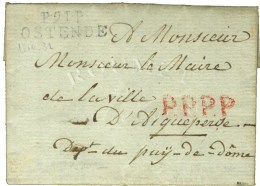 P.91.P.
OSTENDE
A Monsieur
Monsieur le Maire
de la ville
PPPP
D'Aigueperse
Dept. du puÿ-de-dôme